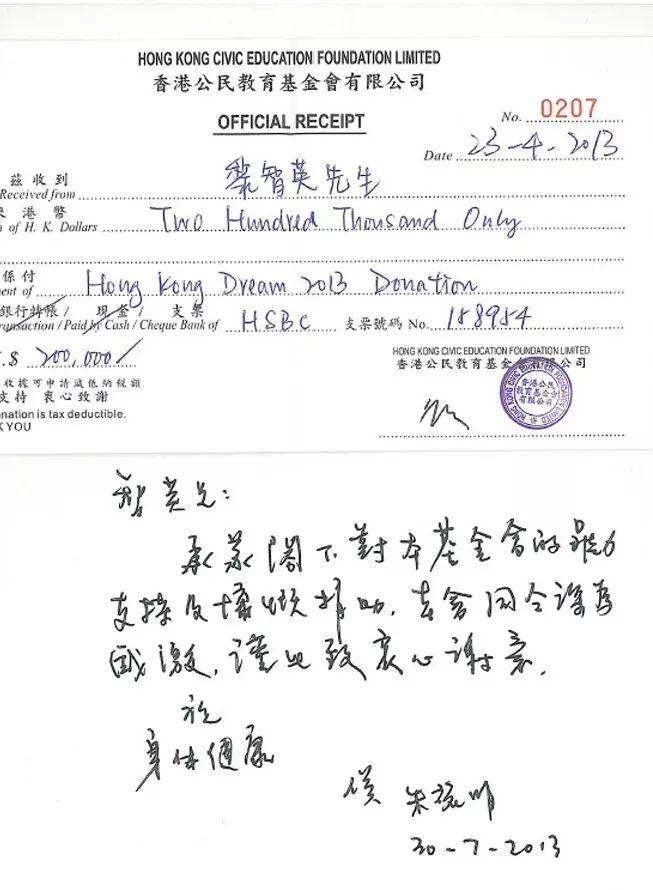 HONG KONG CIVIC EDUCATION FOUNDATION LIMITED
香港公民教育基金會有限公司
OFFICIAL RECEIPT
No. 0207
Date 23-4-2013
茲收到
Received from 黎智英先生
港幣
of H. K. Dollars Two Hundred Thousand Only
係付
ment of Hong Kong Dream 2013 Donation
銀行轉帳 / 現金 / 支票
ransaction / Paid by Cash / Cheque Bank of HSBC 支票號碼 No. 158954
.$ 200,000/
HONG KONG CIVIC EDUCATION FOUNDATION LIMITED
香港公民教育基金會有限公司
收據可申請減低納稅額
支持 衷心致謝
onation is tax deductible.
K YOU
香港公民
教育基金會
有限公司
智英兄:
承蒙閣下對本基金會的鼎力
支持及慷慨捐助，
感激，謹此致衷心謝意.
祝
身体健康
30-7-2013